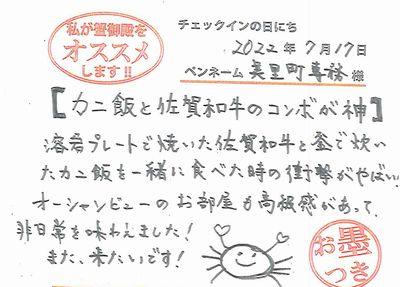 私が蟹御殿を
オススメ
します!!
チェックインの日にち
2022年7月17日
ペンネーム 美里町専務 様
【カニ飯と佐賀和牛のコンボが神】
溶岩プレートで焼いた佐賀和牛と釜で炊い
たカニ飯を一緒に食べた時の衝撃がやばい
オーシャンビューのお部屋も高級感があって、
非日常を味わえました!
また、来たいです!
お墨
つき